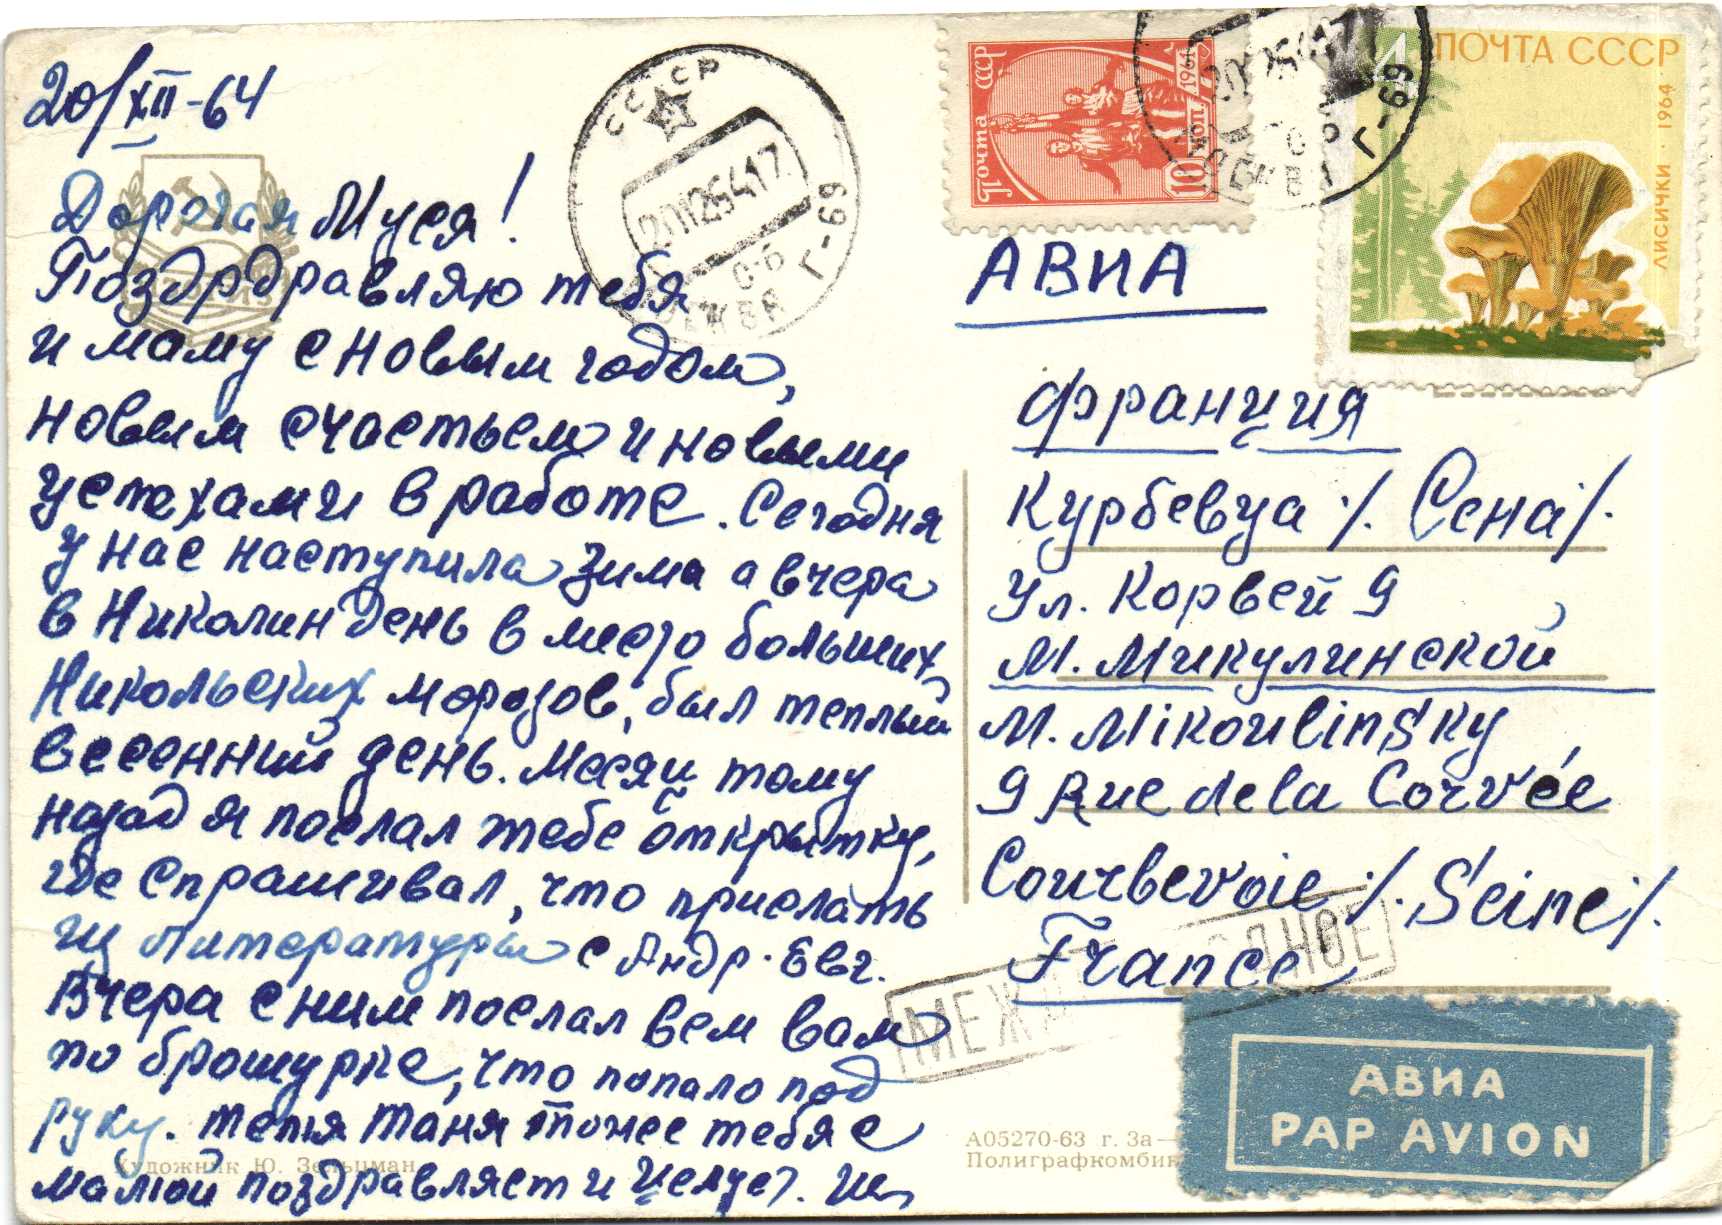 20/XII-64
Дорогая Муся!
Поздрдравляю тебя
и маму с новым годом,
новым счастьем и новыми
успехами в работе. Сегодня
у нас наступила зима а вчера
в Николин день в место больших
Никольских морозов, был теплый
весенний день. Месяц тому
назад я послал тебе открытку,
где спрашивал, что прислать
из литературы с Андр. Евг.
Вчера с ним послал всем вам
по брошурке, что попало под
руку. Тетя Таня тоже тебя с
мамой поздравляет и целует.
Художник Ю. Зельцман
СССР
МОСКВА Г-69
Почта СССР 1961
10 коп.
4 ПОЧТА СССР
ЛИСИЧКИ · 1964
МОСКВА Г-69
АВИА
Франция
Курбевуа /. Сена/.
Ул. Корвей 9
М. Микулинской
M. Mikoulinsky
9 Rue de la Corvée
Courbevoie /. Seine/.
France
АВИА
PAR AVION
А05270-63 г. За
Полиграфкомбин